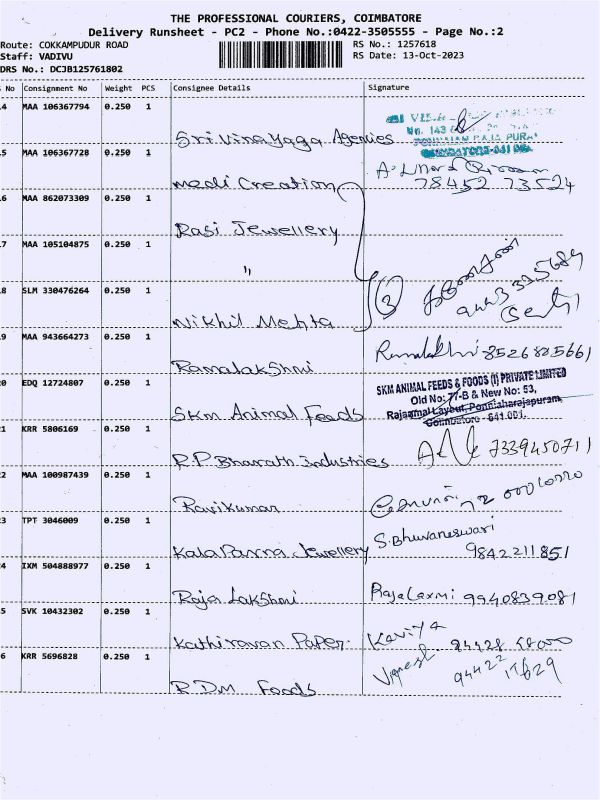 THE PROFESSIONAL COURIERS, COIMBATORE
Delivery Runsheet - PC2 - Phone No.:0422-3505555 - Page No.:2
Route: COKKAMPUDUR ROAD
Staff: VADIVU
DRS No.: DCJB125761802
RS No.: 1257618
RS Date: 13-Oct-2023
No Consignment No Weight PCS Consignee Details Signature
4 MAA 106367794 0.250 1
Sri Vinayaga Agencies
No. 143
5 MAA 106367728 0.250 1
Medi Creation
78452 73524
6 MAA 862073309 0.250 1
Rasi Jewellery
7 MAA 105104875 0.250 1
"
8 SLM 330476264 0.250 1
Nikhil Mehta
3
9 MAA 943664273 0.250 1
Ramalakshmi
8526825661
0 EDQ 12724807 0.250 1
SKM Animal Feeds
SKM ANIMAL FEEDS & FOODS (I) PRIVATE LIMITED
Old No: 77-B & New No: 53,
Rajaamal Layout, Ponniaharajapuram,
Coimbatore - 641 001.
1 KRR 5806169 0.250 1
R.P Bharath Industries
7339450711
2 MAA 100987439 0.250 1
Ravikumar
3 TPT 3046009 0.250 1
Kala Parna Jewellery
S.Bhuvaneswari
9842211851
4 IXM 504888977 0.250 1
Raja Lakshmi
RajaLaxmi 9940839081
5 SVK 10432302 0.250 1
Kathiravan Paper.
Kaviya
6 KRR 5696828 0.250 1
R.D.M Foods
Vignesh